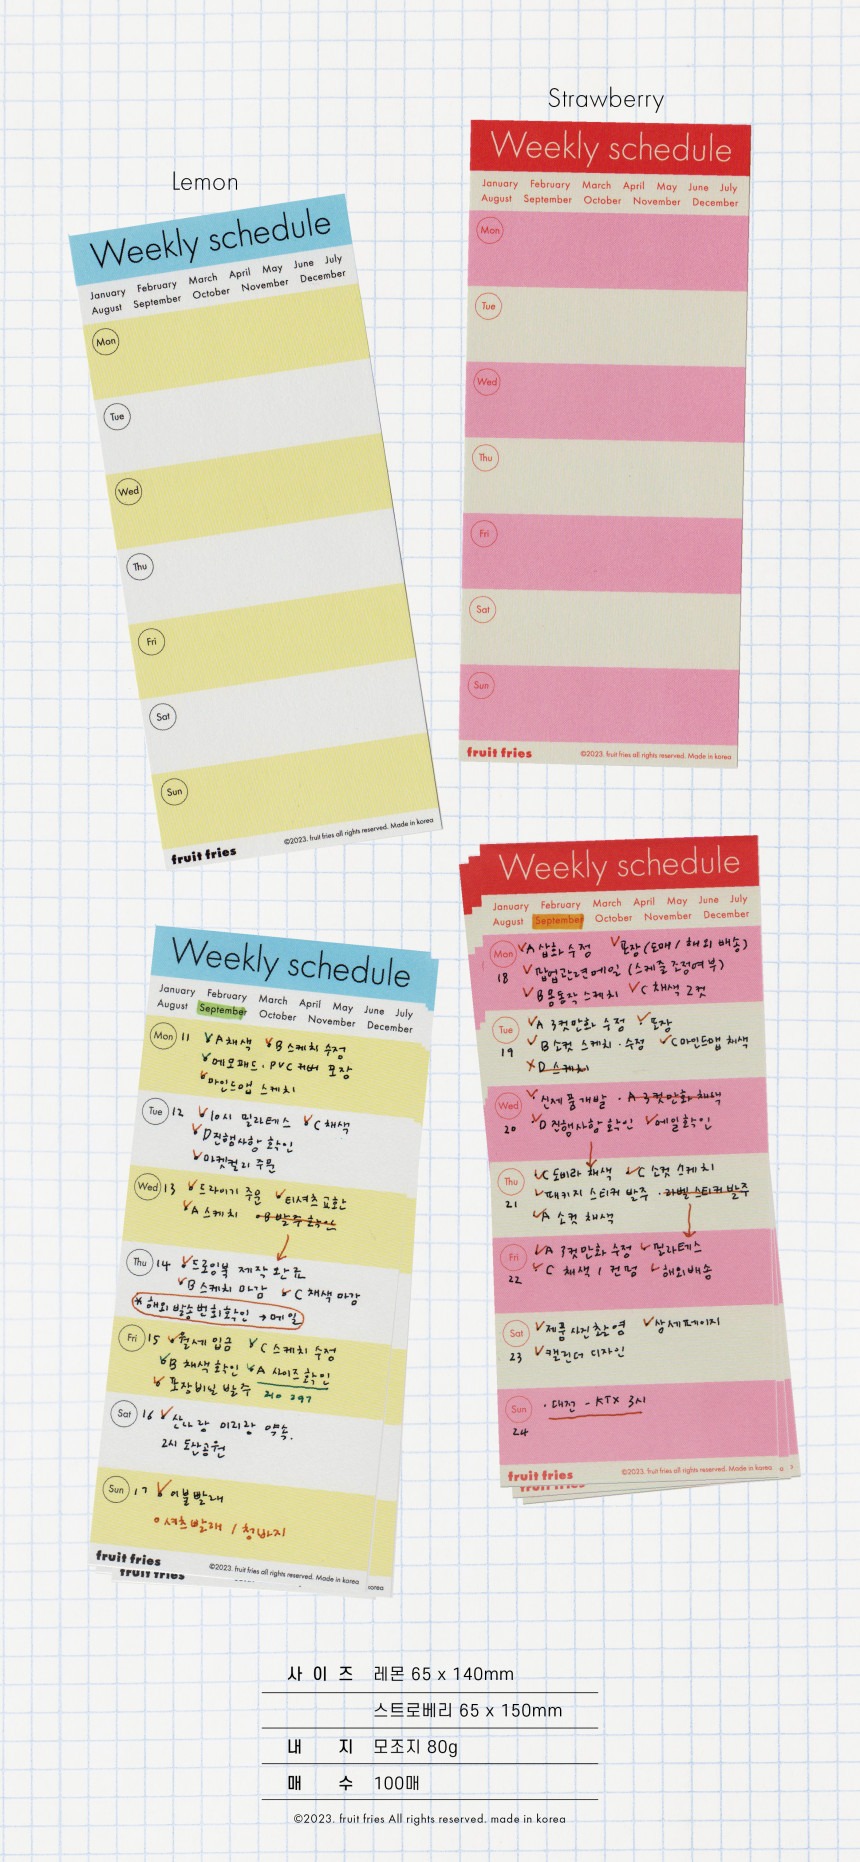 Strawberry
Lemon
Weekly schedule
January February March April May June July
August September October November December
Mon
Tue
Wed
Thu
Fri
Sat
Sun
fruit fries
©2023. fruit fries all rights reserved. Made in korea
Weekly schedule
January February March April May June July
August September October November December
Mon
Tue
Wed
Thu
Fri
Sat
Sun
fruit fries
©2023. fruit fries all rights reserved. Made in korea
Weekly schedule
January February March April May June July
August September October November December
Mon 11 A 채색 B 스케치 수정
메모패드 · PVC 커버 포장
마인드맵 스케치
Tue 12 10시 필라테스 C 채색
D 진행사항 확인
마켓컬리 주문
Wed 13 드라이기 주문 티셔츠 교환
A 스케치 · B 발주 확인
Thu 14 드로잉북 제작 완료
B 스케치 마감 C 채색 마감
* 해외 발송 번호 확인 → 메일
Fri 15 월세 입금 C 스케치 수정
B 채색 확인 A 사이즈 확인
포장비닐 발주 210 297
Sat 16 미리랑 약속.
2시 도산공원
Sun 17 이불빨래
셔츠 빨래 / 청바지
fruit fries
©2023. fruit fries all rights reserved. Made in korea
fruit fries
korea
Weekly schedule
January February March April May June July
August September October November December
Mon A 삽화 수정 포장 (도매 / 해외 배송)
18 팝업관련메일 (스케줄 조정여부)
B 응동작 스케치 C 채색 2컷
Tue A 3컷만화 수정 포장
19 B 소컷 스케치 · 수정 C 마인드맵 채색
D 스케치
Wed 신제품개발 · A 3컷만화 채색
20 D 진행사항 확인 메일확인
Thu C 도비라 채색 C 소컷 스케치
21 패키지 스티커 발주 · 라벨 스티커 발주
A 소컷 채색
Fri A 3컷만화 수정 필라테스
22 C 채색 1 컨펌 해외배송
Sat 제품사진촬영 상세페이지
23 캘린더 디자인
Sun · 대전 - KTX 3시
24
fruit fries
©2023. fruit fries all rights reserved. Made in korea
사이즈 레몬 65 x 140mm
스트로베리 65 x 150mm
내지 모조지 80g
매수 100매
©2023. fruit fries All rights reserved. made in korea